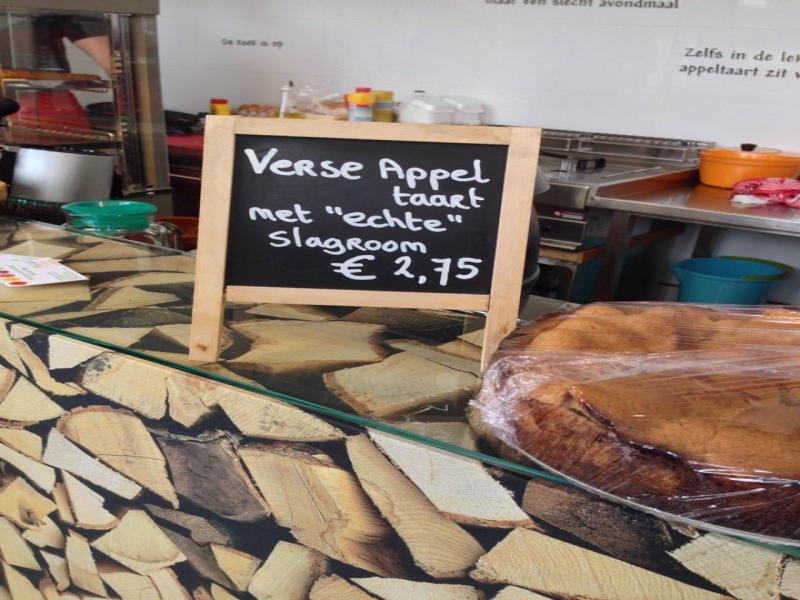 maar een slecht avondmaal
De koek is op
Zelfs in de
appeltaart zit
Verse Appel
taart
met "echte"
slagroom
€ 2,75